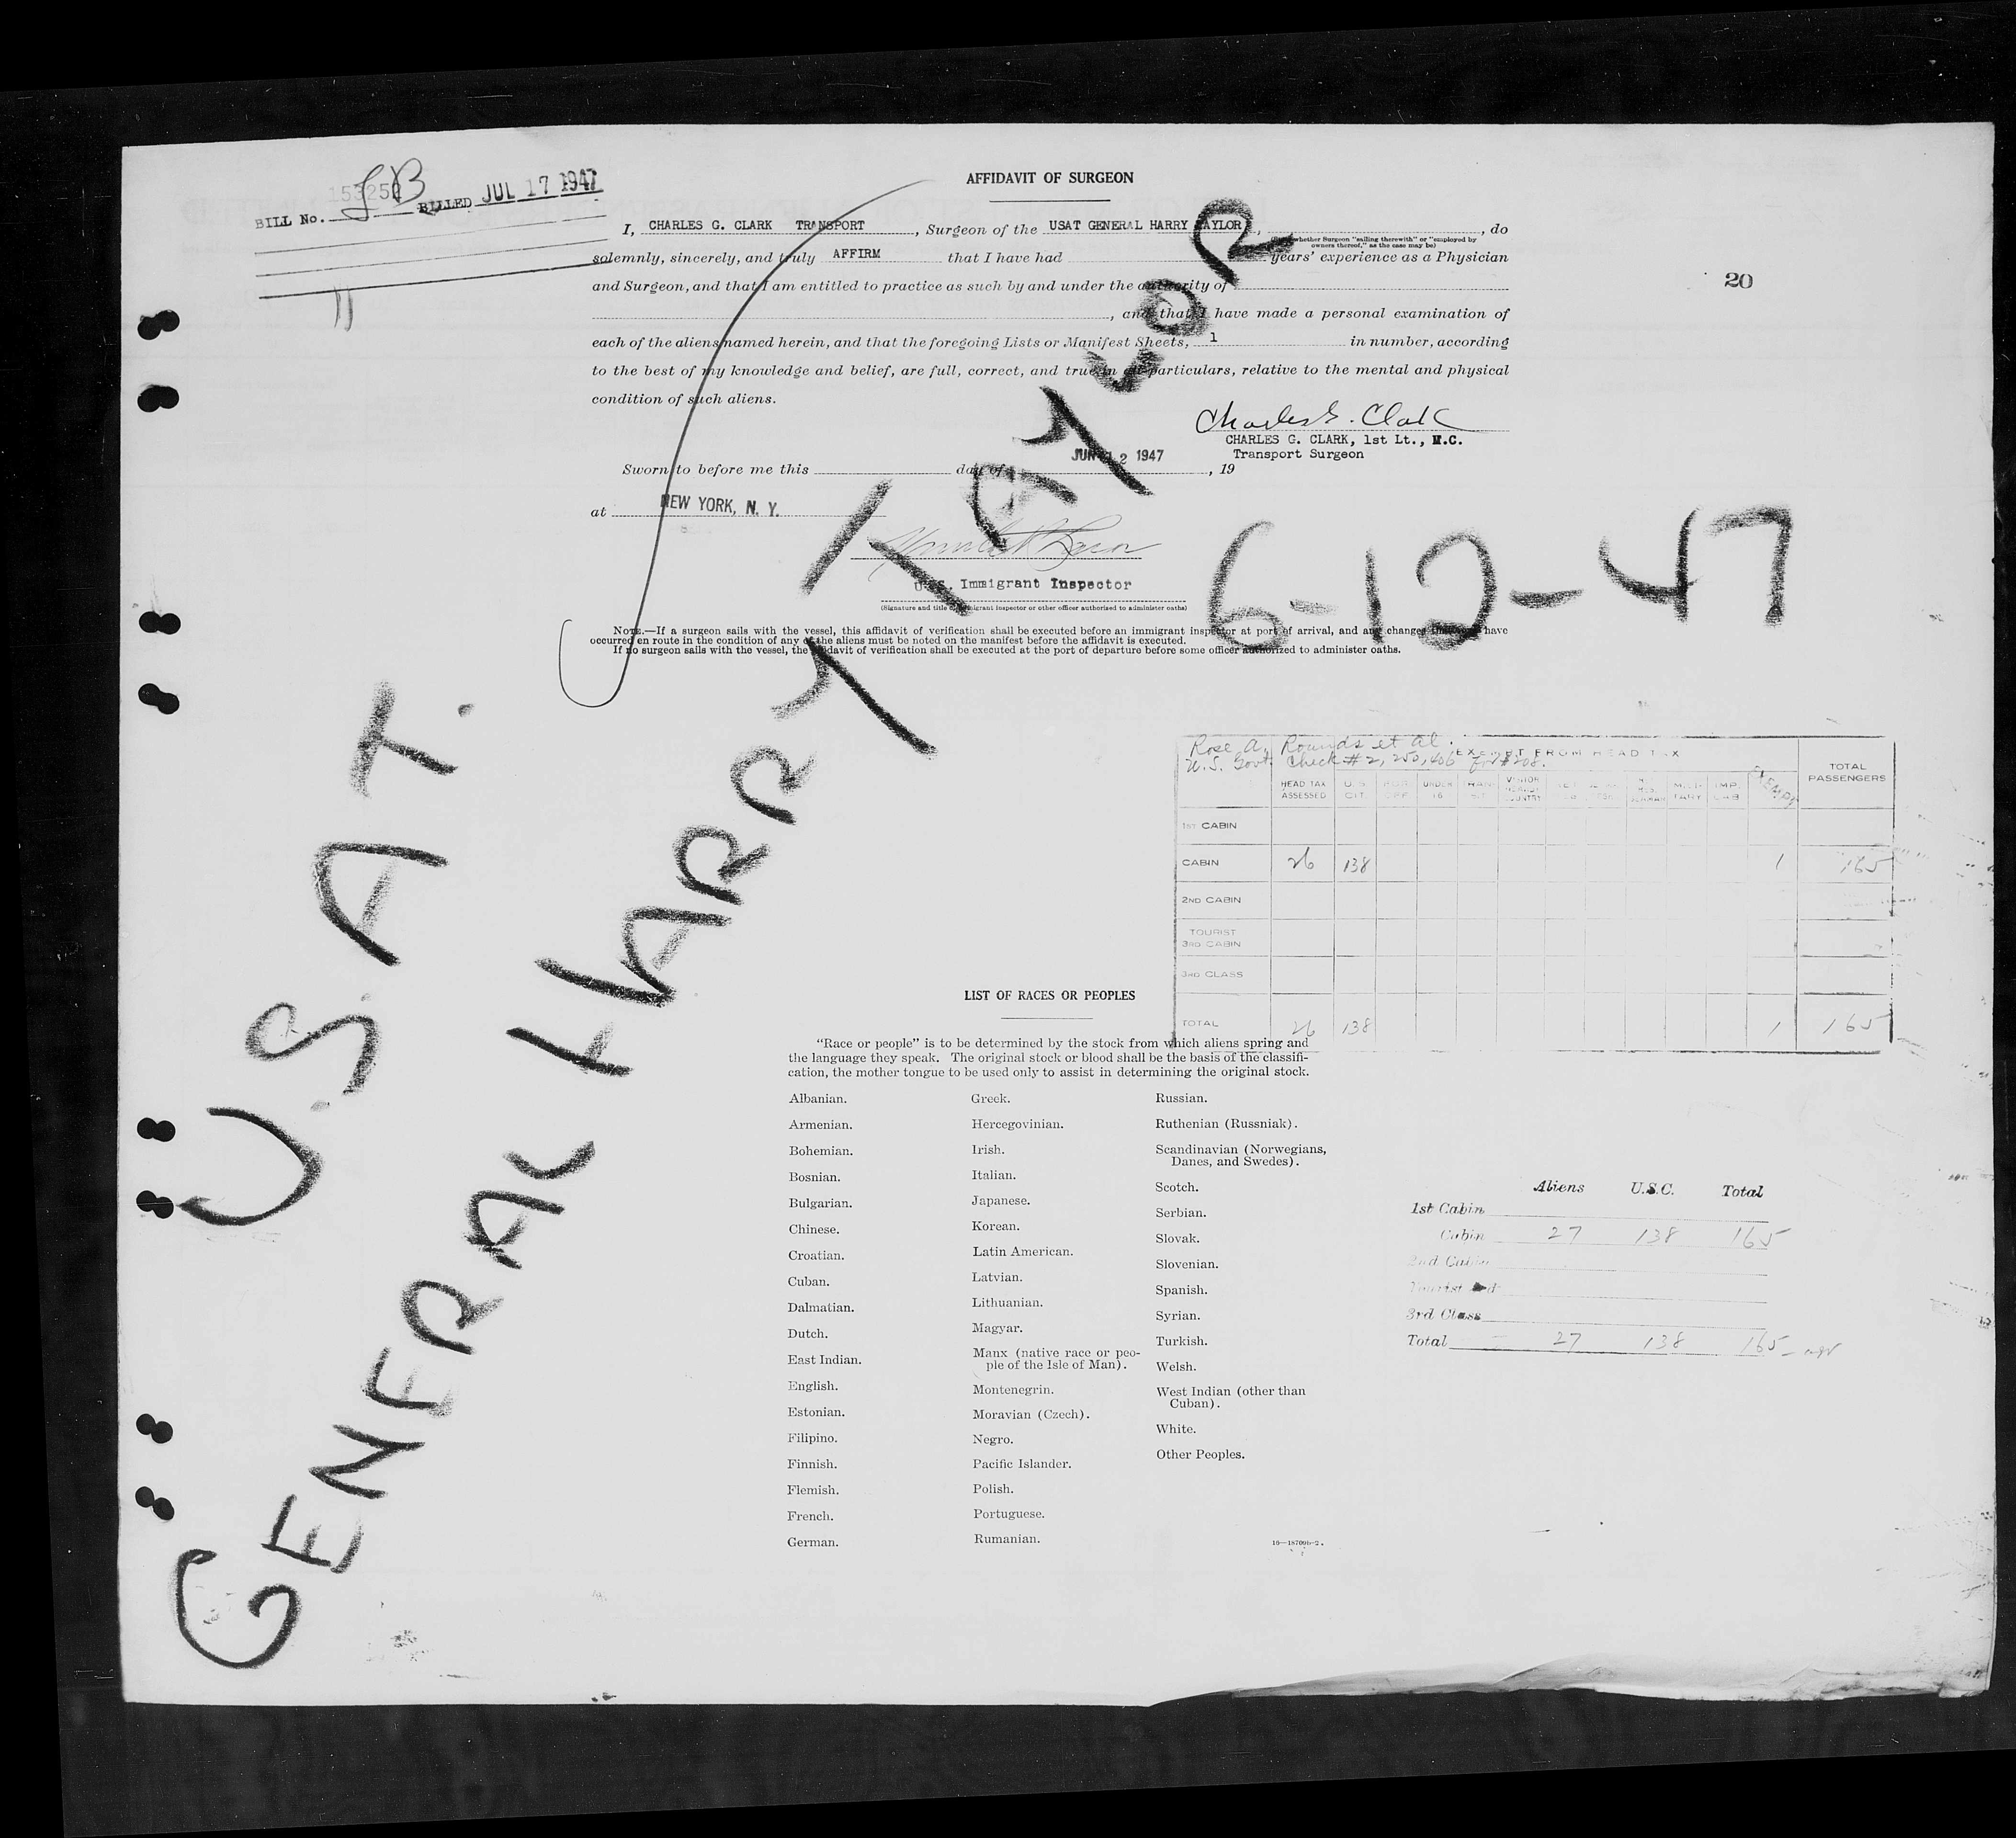 AFFIDAVIT OF SURGEON
BILL No. 153250 BILLED JUL 17 1947
LB
I, CHARLES G. CLARK TRANSPORT, Surgeon of the USAT GENERAL HARRY TAYLOR, , do
whether Surgeon "sailing therewith" or "employed by
owners thereof," as the case may be)
solemnly, sincerely, and truly AFFIRM that I have had years' experience as a Physician
and Surgeon, and that I am entitled to practice as such by and under the authority of
, and that I have made a personal examination of
each of the aliens named herein, and that the foregoing Lists or Manifest Sheets, 1 in number, according
to the best of my knowledge and belief, are full, correct, and true in all particulars, relative to the mental and physical
condition of such aliens.
20
Charles G. Clark
CHARLES G. CLARK, 1st Lt., M.C.
Transport Surgeon
Sworn to before me this day of JUN 12 1947, 19
at NEW YORK, N. Y.
U.S. Immigrant Inspector
(Signature and title of immigrant inspector or other officer authorized to administer oaths)
NOTE.—If a surgeon sails with the vessel, this affidavit of verification shall be executed before an immigrant inspector at port of arrival, and any changes that may have
occurred en route in the condition of any of the aliens must be noted on the manifest before the affidavit is executed.
If no surgeon sails with the vessel, the affidavit of verification shall be executed at the port of departure before some officer authorized to administer oaths.
U.S.A.T.
GENERAL HARRY TAYLOR
6-12-47
Rose A. Rounds et al.
U.S. Govt. Check # 2,250,406 for $208.
EXEMPT FROM HEAD TAX
HEAD TAX ASSESSED U.S. CIT. UNDER 16 EXEMPT TOTAL PASSENGERS
1ST CABIN
CABIN 26 138 1 165
2ND CABIN
TOURIST
3RD CABIN
3RD CLASS
TOTAL 26 138 1 165
LIST OF RACES OR PEOPLES
"Race or people" is to be determined by the stock from which aliens spring and
the language they speak. The original stock or blood shall be the basis of the classifi-
cation, the mother tongue to be used only to assist in determining the original stock.
Albanian.
Armenian.
Bohemian.
Bosnian.
Bulgarian.
Chinese.
Croatian.
Cuban.
Dalmatian.
Dutch.
East Indian.
English.
Estonian.
Filipino.
Finnish.
Flemish.
French.
German.
Greek.
Hercegovinian.
Irish.
Italian.
Japanese.
Korean.
Latin American.
Latvian.
Lithuanian.
Magyar.
Manx (native race or peo-
ple of the Isle of Man).
Montenegrin.
Moravian (Czech).
Negro.
Pacific Islander.
Polish.
Portuguese.
Rumanian.
Russian.
Ruthenian (Russniak).
Scandinavian (Norwegians,
Danes, and Swedes).
Scotch.
Serbian.
Slovak.
Slovenian.
Spanish.
Syrian.
Turkish.
Welsh.
West Indian (other than
Cuban).
White.
Other Peoples.
16—18709b-2
Aliens U.S.C. Total
1st Cabin
Cabin 27 138 165
2nd Cabin
Tourist 3rd
3rd Class
Total 27 138 165